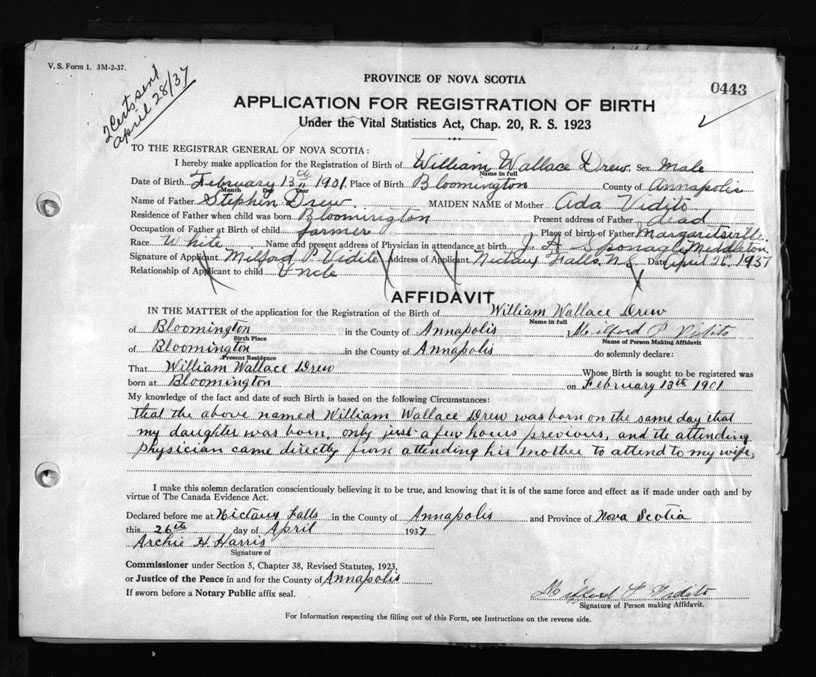 V. S. Form 1. 3M-2-37.
2 Certs sent
April 28/37
0443
PROVINCE OF NOVA SCOTIA
APPLICATION FOR REGISTRATION OF BIRTH
Under the Vital Statistics Act, Chap. 20, R. S. 1923
TO THE REGISTRAR GENERAL OF NOVA SCOTIA:
I hereby make application for the Registration of Birth of William Wallace Drew Sex Male
Name in full
Date of Birth February 13th 1901. Place of Birth Bloomington County of Annapolis
Month Day Year
Name of Father Stephen Drew MAIDEN NAME of Mother Ada Vidito
Residence of Father when child was born Bloomington Present address of Father dead
Occupation of Father at Birth of child farmer Place of birth of Father Margaretsville
Race White Name and present address of Physician in attendance at birth J A Sponagle Middleton
Signature of Applicant Milford P Vidito Address of Applicant Nictaux Falls, N.S. Date April 26th 1937
Relationship of Applicant to child Uncle
AFFIDAVIT
IN THE MATTER of the application for the Registration of the Birth of William Wallace Drew
Name in full
of Bloomington in the County of Annapolis I, Milford P Vidito
Birth Place Name of Person Making Affidavit
of Bloomington in the County of Annapolis do solemnly declare:
Present Residence
That William Wallace Drew Whose Birth is sought to be registered was
born at Bloomington on February 13th 1901
My knowledge of the fact and date of such Birth is based on the following Circumstances:
that the above named William Wallace Drew was born on the same day that
my daughter was born, only just a few hours previous, and the attending
physician came directly from attending his mother to attend to my wife,
I make this solemn declaration conscientiously believing it to be true, and knowing that it is of the same force and effect as if made under oath and by
virtue of The Canada Evidence Act.
Declared before me at Nictaux Falls in the County of Annapolis and Province of Nova Scotia
this 26th day of April 1937
Archie H. Harris
Signature of
Commissioner under Section 5, Chapter 38, Revised Statutes, 1923,
or Justice of the Peace in and for the County of Annapolis
If sworn before a Notary Public affix seal.
Milford P Vidito
Signature of Person making Affidavit.
For Information respecting the filling out of this Form, see Instructions on the reverse side.